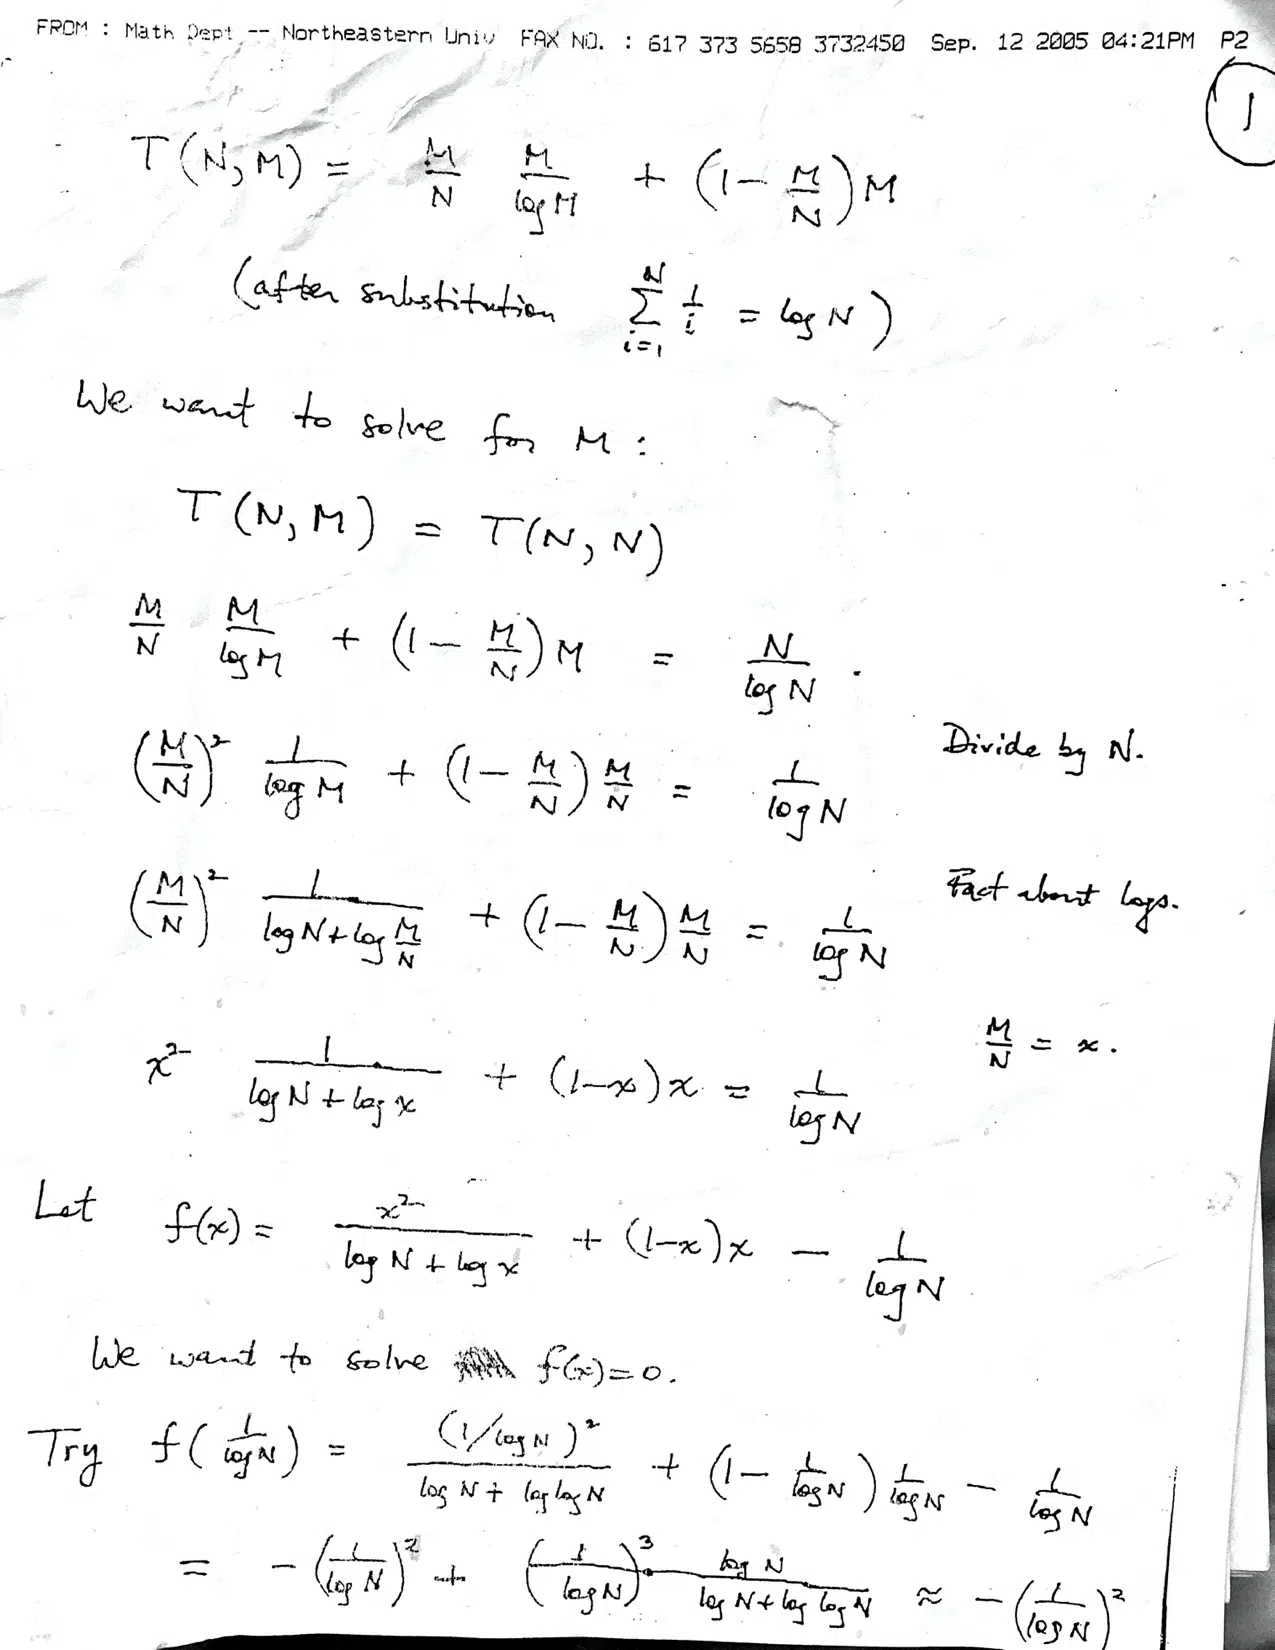 FROM : Math Dept -- Northeastern Univ FAX NO. : 617 373 5658 3732450 Sep. 12 2005 04:21PM P2
1
T(N,M) = M/N M/log M + (1 - M/N) M
(after substitution ∑_{i=1}^{N} 1/i = log N)
We want to solve for M :
T(N,M) = T(N,N)
M/N M/log M + (1 - M/N) M = N/log N .
(M/N)² 1/log M + (1 - M/N) M/N = 1/log N Divide by N.
(M/N)² 1/(log N + log M/N) + (1 - M/N) M/N = 1/log N Fact about logs.
x² 1/(log N + log x) + (1-x)x = 1/log N M/N = x.
Let f(x) = x²/(log N + log x) + (1-x)x - 1/log N
We want to solve f(x)=0.
Try f(1/log N) = (1/log N)²/(log N + log log N) + (1 - 1/log N) 1/log N - 1/log N
= -(1/log N)² + (1/log N)³ · log N/(log N + log log N) ≈ -(1/log N)²